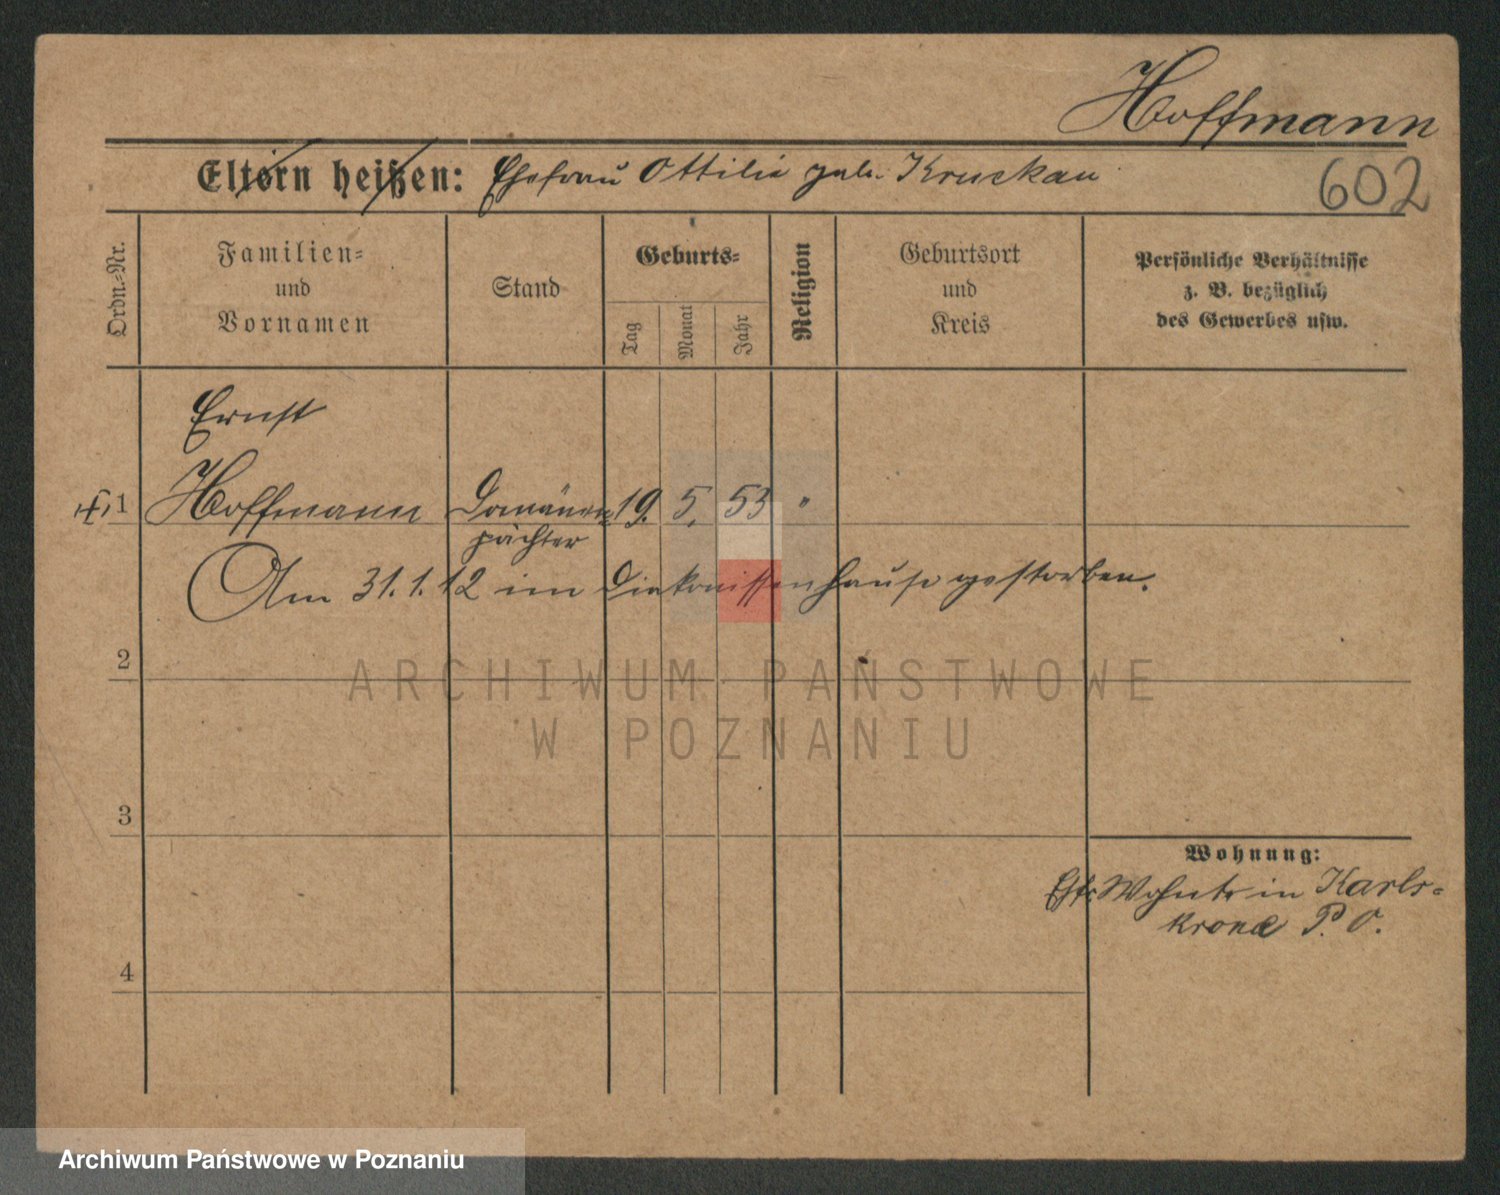 Hoffmann
Eltern heißen: Ehefrau Ottilie geb. Kruckau
602
Ordn.-Nr.
Familien-
und
Vornamen
Stand
Geburts-
Tag
Monat
Jahr
Religion
Geburtsort
und
Kreis
Persönliche Verhältnisse
z. B. bezüglich
des Gewerbes usw.
Ernst
1 Hoffmann Domänen- 19. 5. 53 "
pächter
Am 31.1.12 im Diakonissenhause gestorben.
2
ARCHIWUM PAŃSTWOWE
W POZNANIU
3
Wohnung:
Wohnte in Karls-
krone P. O.
4
Archiwum Państwowe w Poznaniu